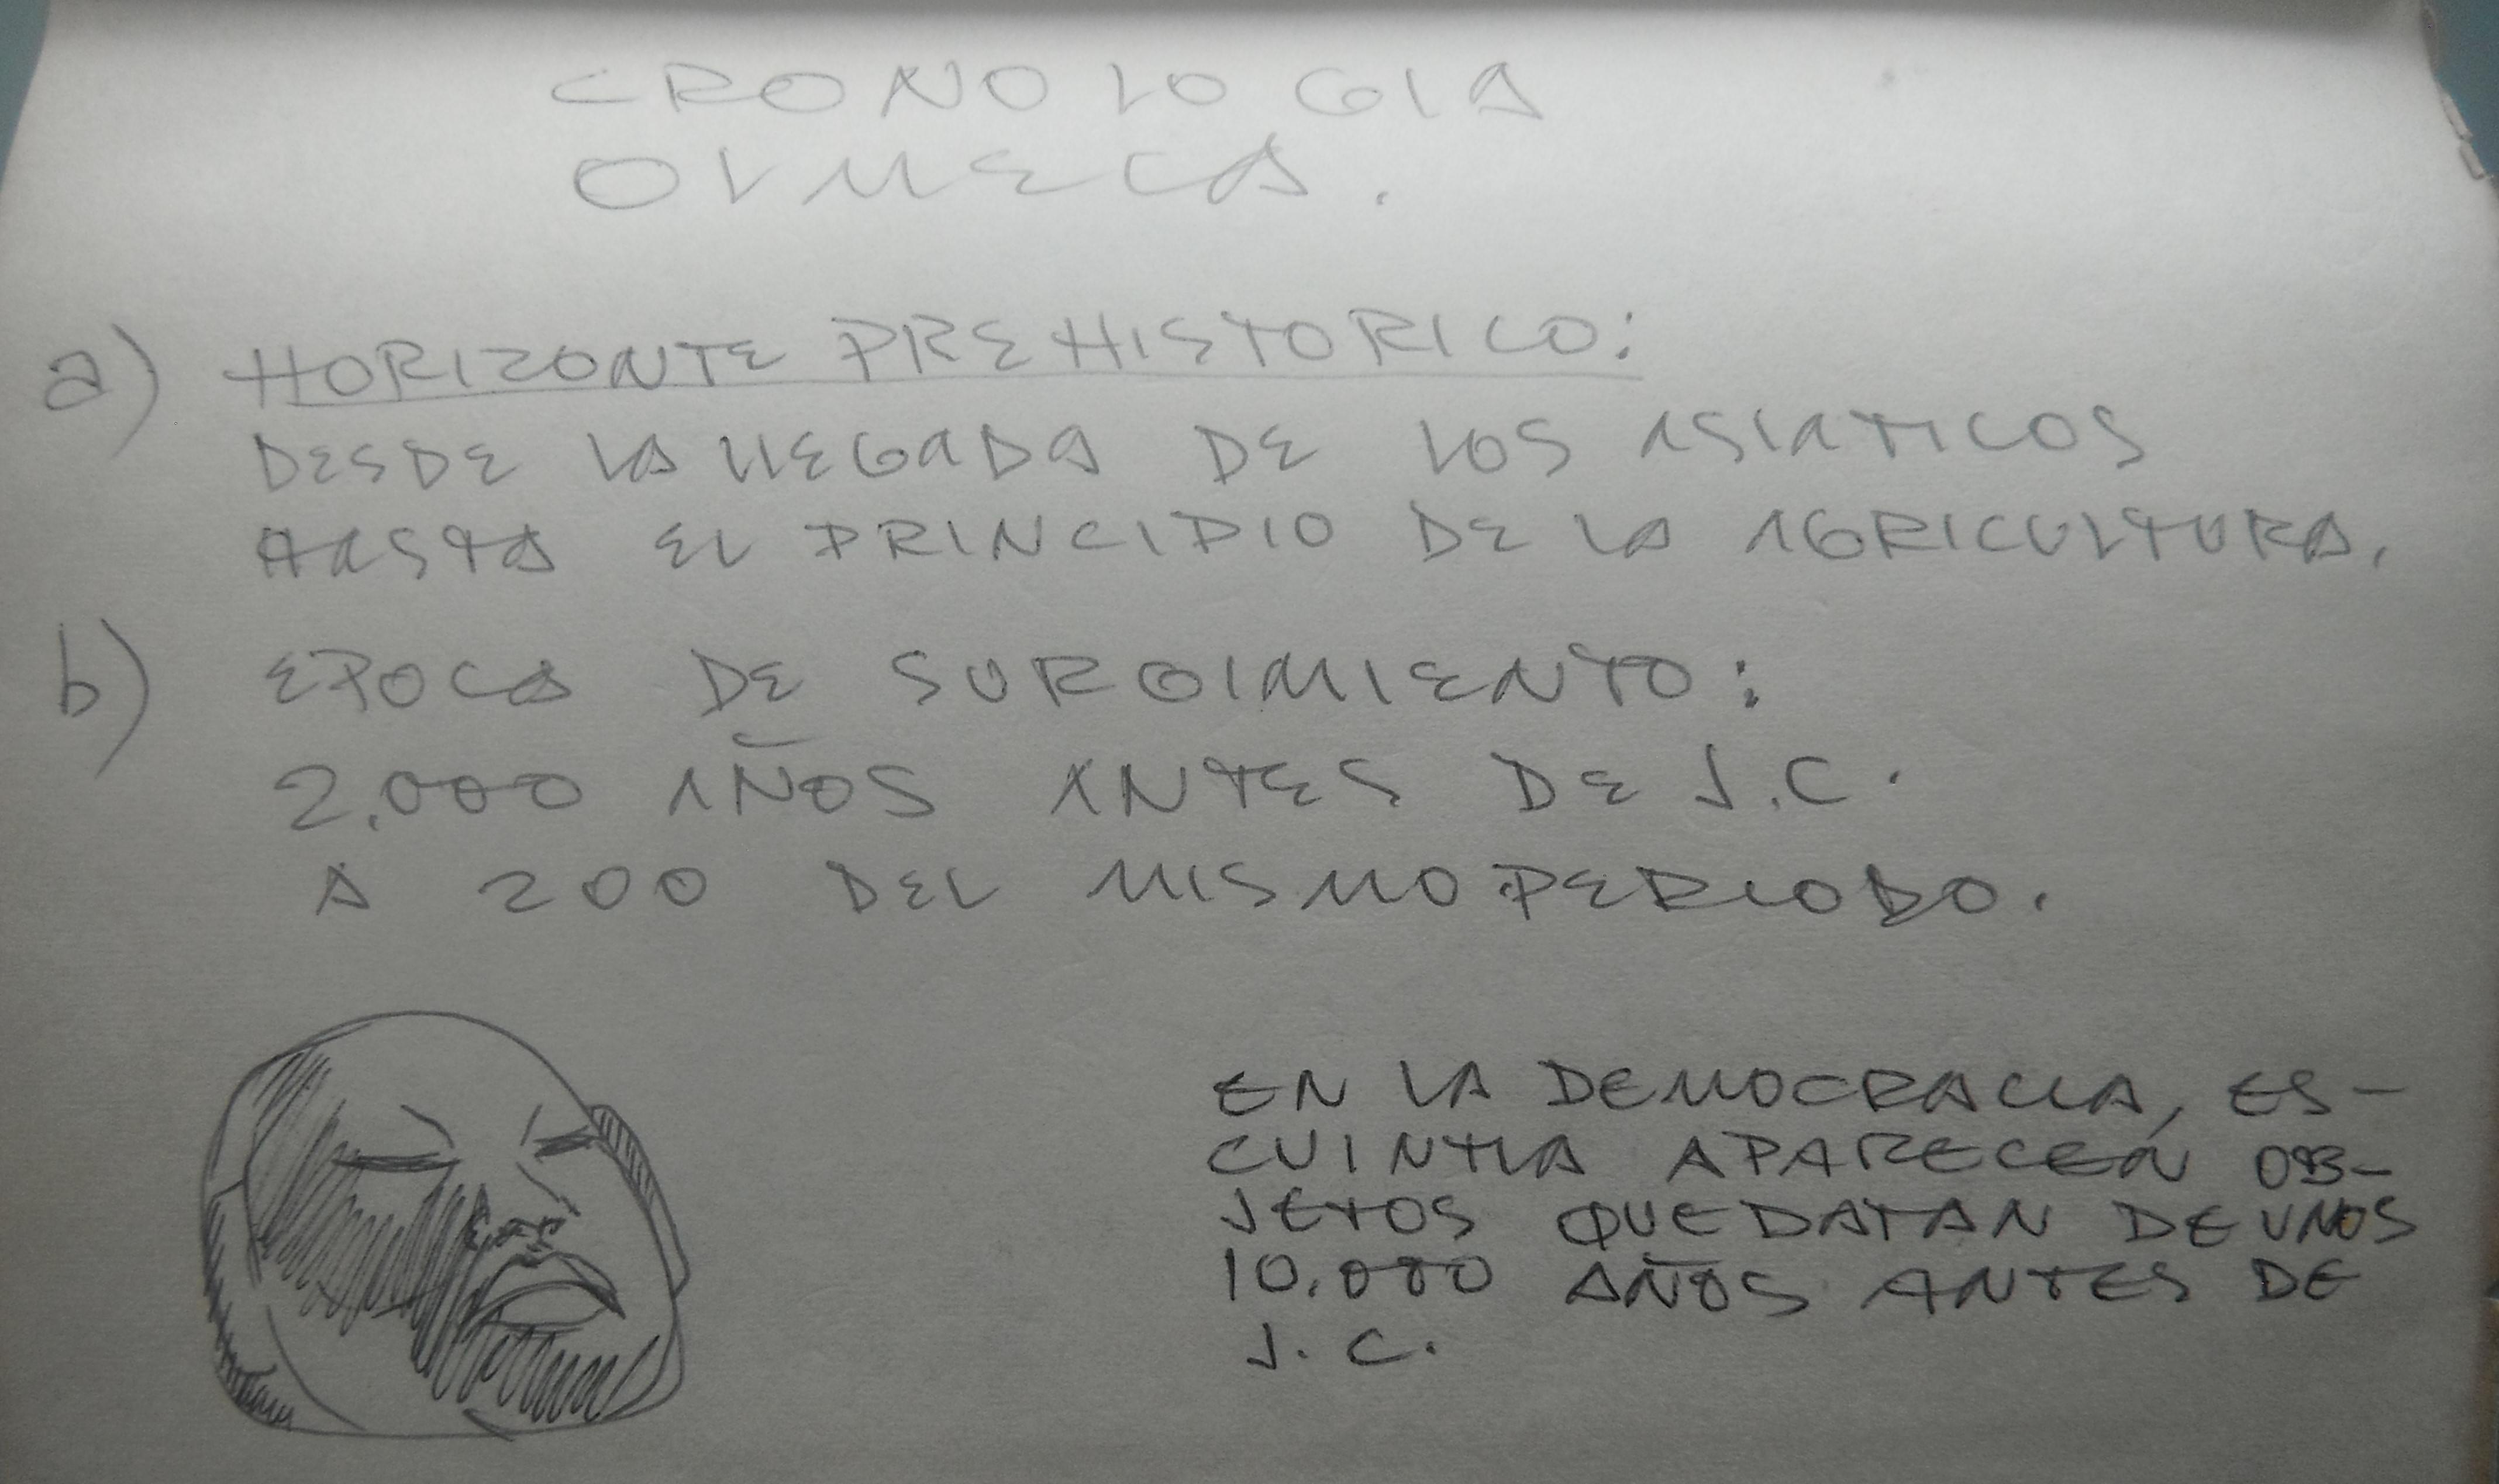 CRONOLOGIA
OLMECA.
a) HORIZONTE PREHISTORICO:
DESDE LA LLEGADA DE LOS ASIATICOS
HASTA EL PRINCIPIO DE LA AGRICULTURA.
b) EPOCA DE SURGIMIENTO:
2,000 AÑOS ANTES DE J.C.
A 200 DEL MISMO PERIODO.
EN LA DEMOCRACIA, ES-
CUINTLA APARECEN OB-
JETOS QUE DATAN DE UNOS
10,000 AÑOS ANTES DE
J.C.